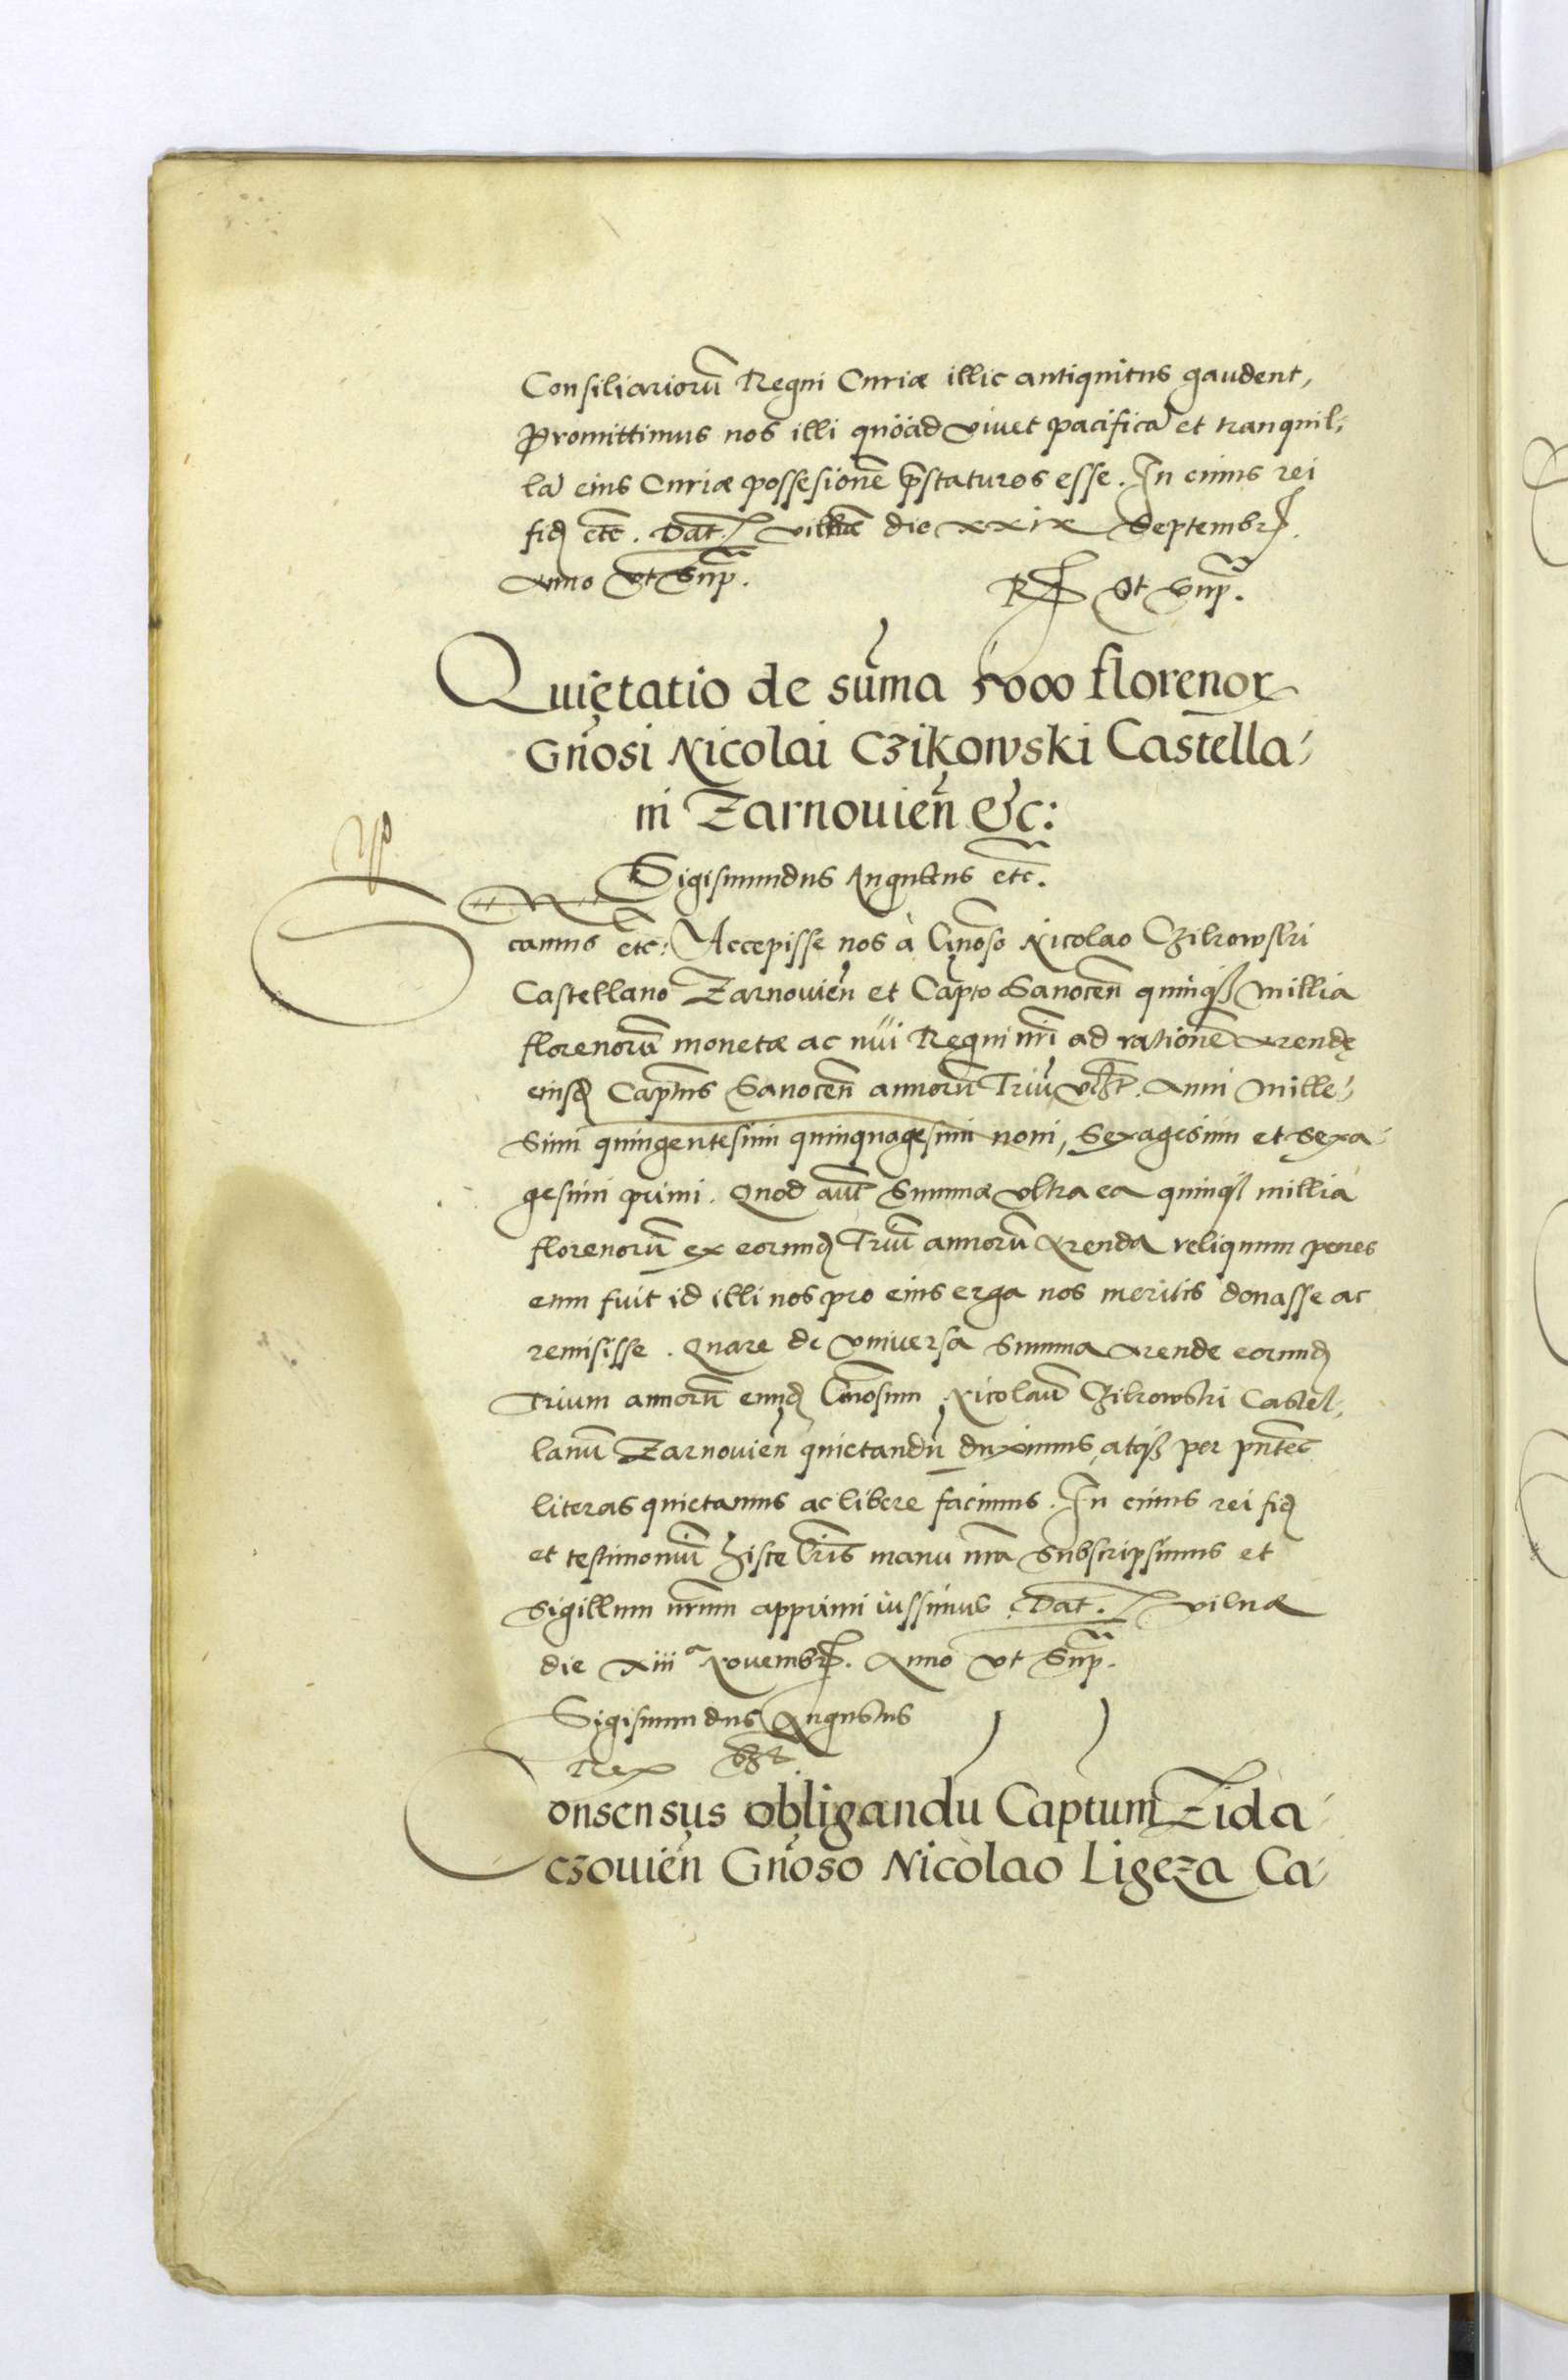 Consiliariorũ Regni Curiæ illic antiquitus gaudent,
Promittimus nos illi quòad viuet pacifica et tranquil,
la eius Curiæ possesionẽ p̃staturos esse. In cuius rei
fid etc̃. Dat. Vilnæ die xxix Septembr.
Anno vt Sup̃.
R S Vt Sup̃.
Quietatio de sum̃a 5000 florenor
Gñosi Nicolai Czikowski Castella,
ni Zarnouieñ &c:
Sigismundus Augustus etc̃.
camus etc: Accepisse nos à Gñoso Nicolao Czikowski
Castellano Zarnouieñ et Capto Sanoceñ quinq millia
florenorũ monetæ ac nũi Regni nr̃i ad rationẽ Arendę
eiusd Captus Sanoceñ annorũ Triũ vclt. Anni Mille,
simi quingentesimi quinquagesimi noni, Sexagesimi et sexa,
gesimi primi. Quod aũt Summæ vltra ea quinq millia
florenorũ ex eorund Triũ annorũ Arenda reliquum penes
eum fuit id illi nos pro eius erga nos meritis donasse ac
remisisse. Quare de vniversa Summa Arende eorund
Trium annorũ eund Gñosum Nicolaũ Czikowski Castel,
lanũ Zarnouieñ quietandũ duximus, atq per pñtes
literas quietamus ac libere facimus. In cuius rei fid
et testimoniũ hisce lr̃is manu nr̃a Subscripsimus et
Sigillum nr̃um apprimi iussimus. Dat. Vilnæ
die xiii a Nouembr. Anno vt Sup̃.
Sigismundus Augustus
Rex
Consensus obligandu Captum Zida,
czouieñ Gñoso Nicolao Ligeza Ca,